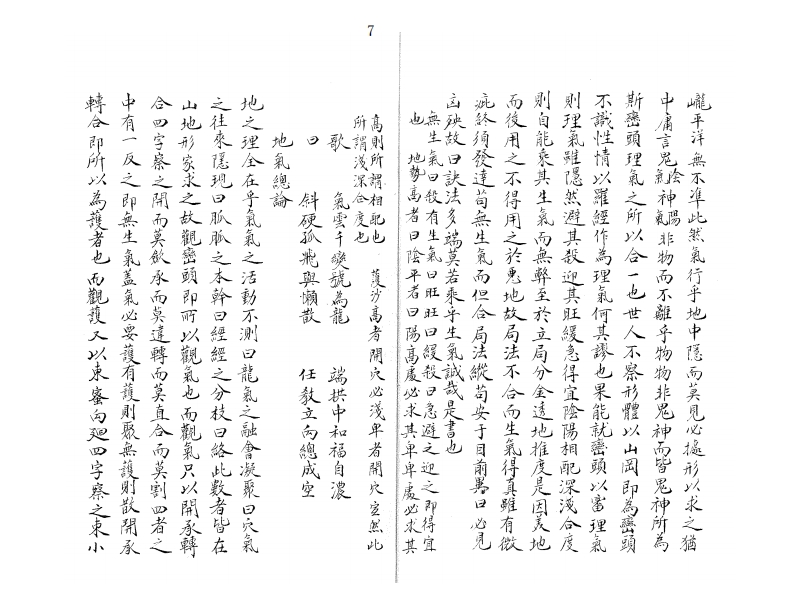 7
巄平洋無不準此然氣行乎地中隱而莫見必據形以求之猶
中庸言鬼陰氣神陽氣非物而不離乎物物非鬼神而皆鬼神所為
斯巒頭理氣之所以合一也世人不察形體以山岡即為巒頭
不識性情以羅經作為理氣何其謬也果能就巒頭以審理氣
則理氣雖隱然避其殺迎其旺緩急得宜陰陽相配深淺合度
則自能乘其生氣而無弊至於立局分金透地推度是因美地
而後用之不得用之於惡地故局法不合而生氣得真雖有微
疵終須發達苟無生氣而但合局法縱苟安于目前異日必見
凶殃故曰訣法多端莫若乘乎生氣誠哉是書也
無生氣曰殺有生氣曰旺旺曰緩殺曰急避之迎之即得宜
也 地勢高者曰陰平者曰陽高處必求其卑卑處必求其
高則所謂相配也 護沙高者開穴必淺卑者開穴宜然此
所謂淺深合度也
歌 氣雲千變號為龍 端拱中和福自濃
曰 斜硬孤飛與懶散 任教立向總成空
地氣總論
地之理全在乎氣氣之活動不測曰龍氣之融會凝聚曰穴氣
之往來隱現曰脈脈之本幹曰經經之分枝曰絡此數者皆在
山地形家求之故觀巒頭即所以觀氣也而觀氣只以開承轉
合四字察之開而莫歛承而莫違轉而莫直合而莫割四者之
中有一反之即無生氣蓋氣必要護有護則聚無護則散開承
轉合即所以為護者也而觀護又以束蜜向迴四字察之束小